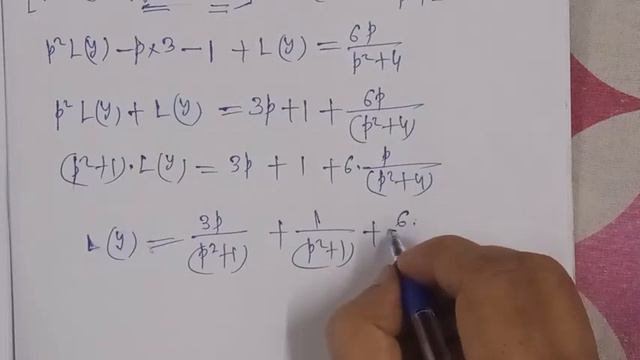 p²L(y) - p×3 - 1 + L(y) = 6p/(p²+4)
p²L(y) + L(y) = 3p + 1 + 6p/(p²+4)
(p²+1)·L(y) = 3p + 1 + 6·p/(p²+4)
L(y) = 3p/(p²+1) + 1/(p²+1) + 6·